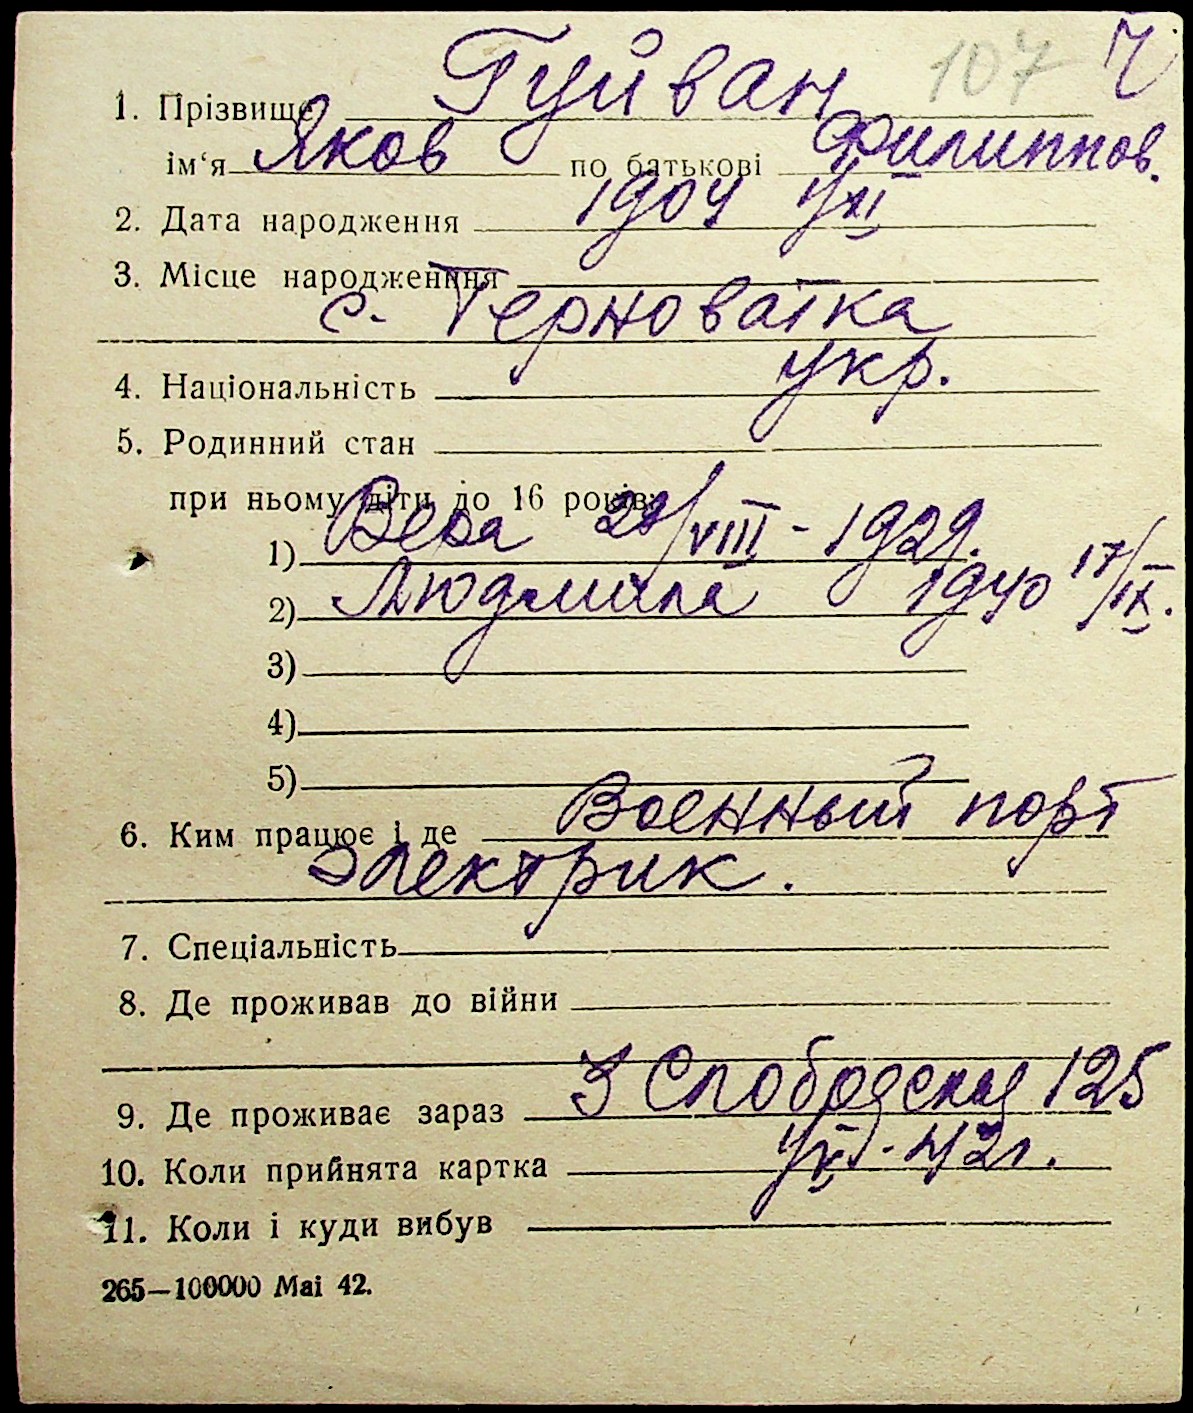 107 Ч
1. Прізвище Гуйван
ім‘я Яков по батькові Филиппов.
2. Дата народження 1904 XII
3. Місце народженння
с. Терноватка
4. Національність укр.
5. Родинний стан
при ньому діти до 16 років:
1) Вера 29/VIII - 1929.
2) Людмила 1940 17/IX.
3)
4)
5)
6. Ким працює і де Военный порт
Электрик.
7. Спеціальність
8. Де проживав до війни
9. Де проживає зараз 3 Слободская 125
10. Коли прийнята картка 42г.
11. Коли і куди вибув
265—100000 Mai 42.